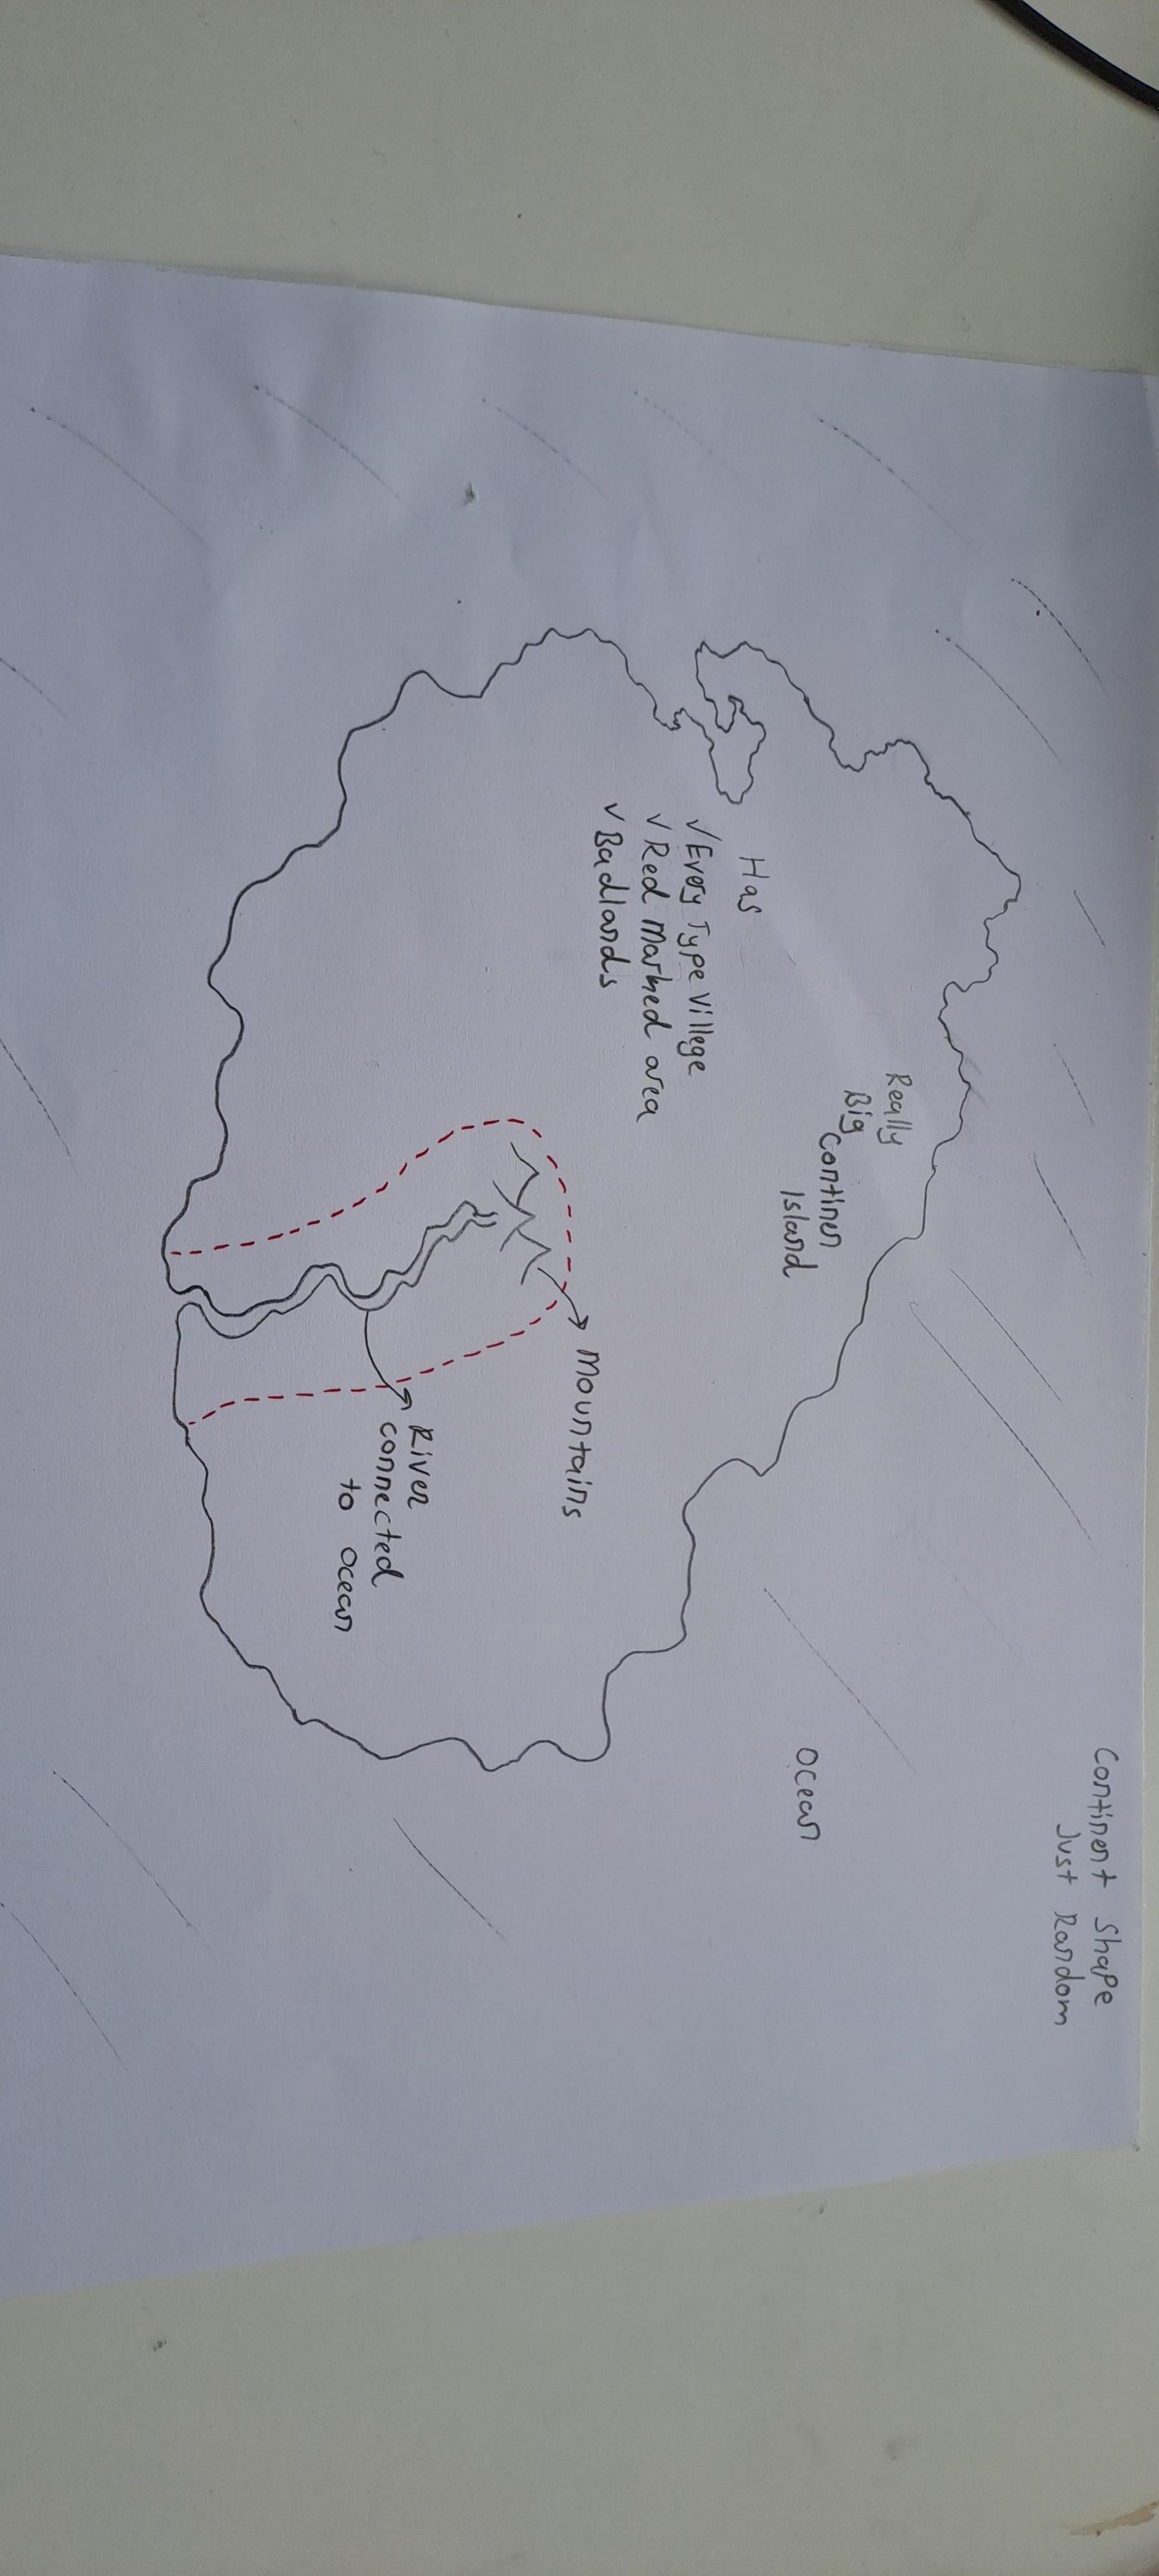 Continent Shape
Just Random
Ocean
Really
Big
Continen
Island
Has
✓Every Type Villege
✓Red Marked area
✓Badlands
Mountains
River
connected
to ocean